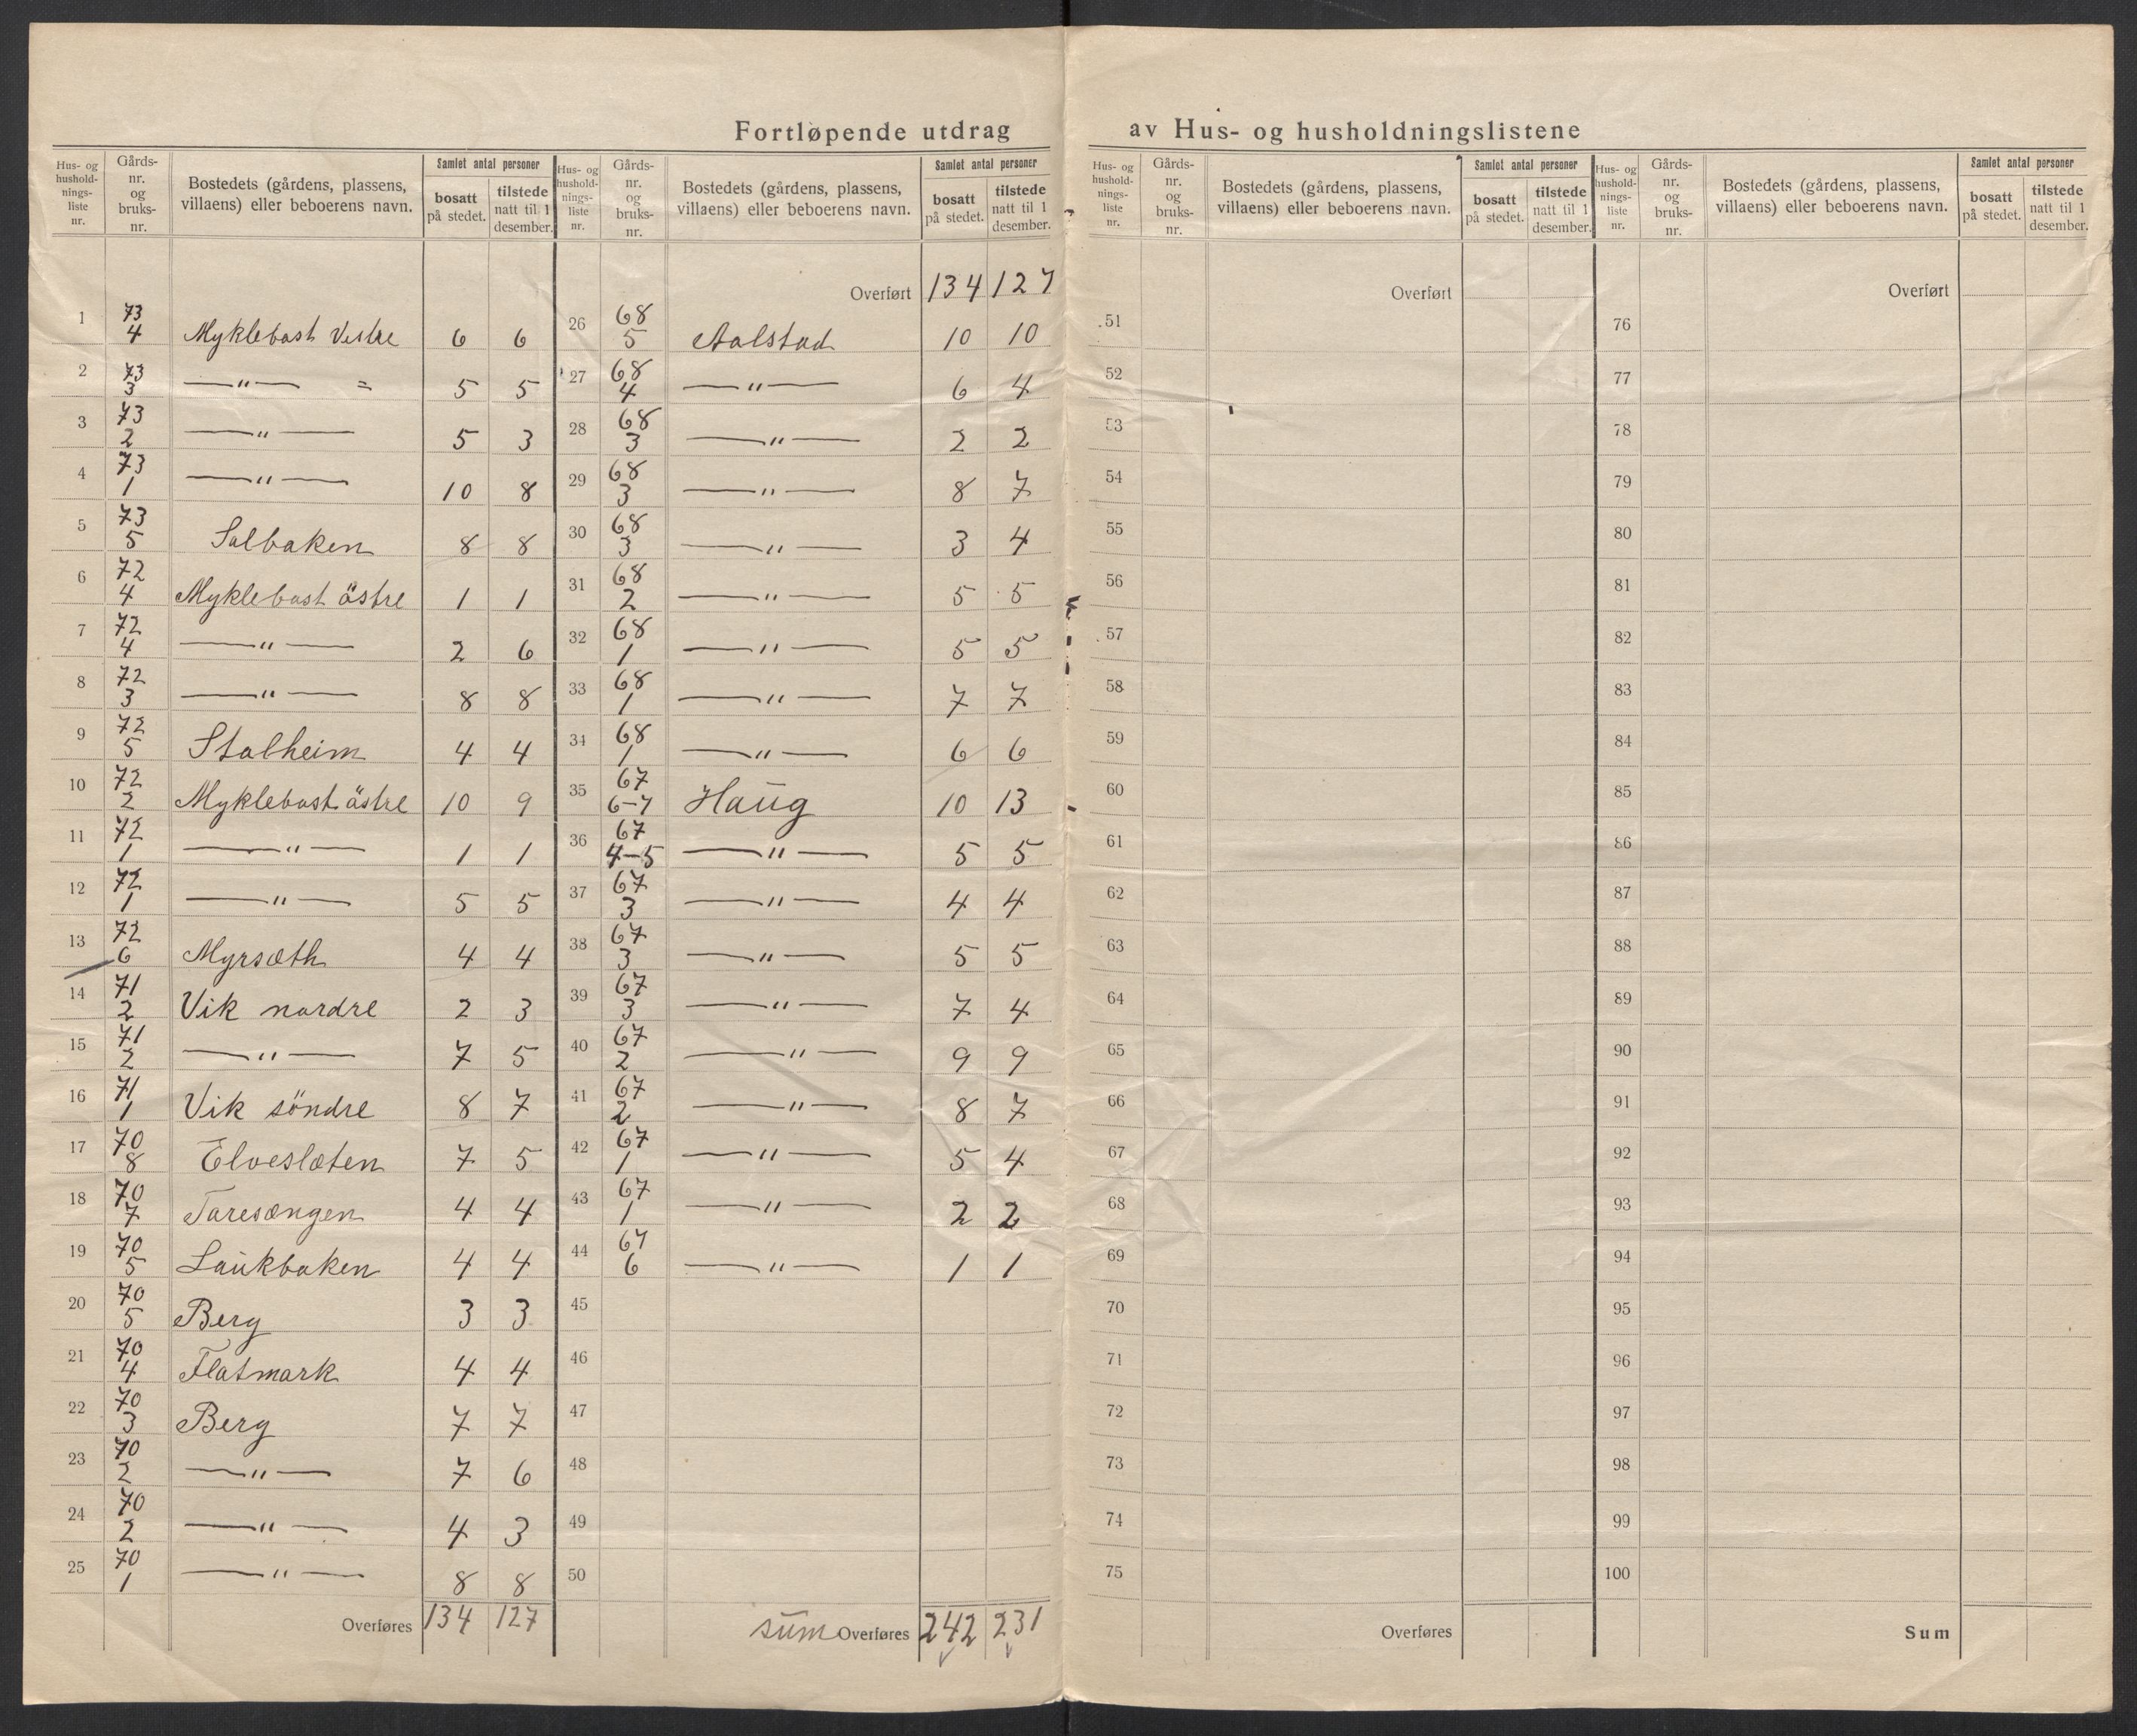 Fortløpende utdrag av Hus- og husholdningslistene
Hus- og husholdnings-liste nr. | Gårds-nr. og bruks-nr. | Bostedets (gårdens, plassens, villaens) eller beboerens navn. | Samlet antal personer: bosatt på stedet. | tilstede natt til 1 desember.
1 73/4 Myklebost Vestre 6 6
2 73/3 —"— = 5 5
3 73/2 —"— 5 3
4 73/1 —"— 10 8
5 73/5 Solbaken 8 8
6 72/4 Myklebost östre 1 1
7 72/4 —"— 2 6
8 72/3 —"— 8 8
9 72/5 Stalheim 4 4
10 72/2 Myklebost östre 10 9
11 72/1 —"— 1 1
12 72/1 —"— 5 5
13 72/6 Myrsæth 4 4
14 71/2 Vik nordre 2 3
15 71/2 —"— 7 5
16 71/1 Vik söndre 8 7
17 70/8 Elvesletten 7 5
18 70/7 Toresængen 4 4
19 70/5 Laukbaken 4 4
20 70/5 Berg 3 3
21 70/4 Flatmark 4 4
22 70/3 Berg 7 7
23 70/2 —"— 7 6
24 70/2 —"— 4 3
25 70/1 —"— 8 8
Overføres 134 127
Hus- og husholdnings-liste nr. | Gårds-nr. og bruks-nr. | Bostedets (gårdens, plassens, villaens) eller beboerens navn. | Samlet antal personer: bosatt på stedet. | tilstede natt til 1 desember.
Overført 134 127
26 68/5 Aalstad 10 10
27 68/4 —"— 6 4
28 68/3 —"— 2 2
29 68/3 —"— 8 7
30 68/3 —"— 3 4
31 68/2 —"— 5 5
32 68/1 —"— 5 5
33 68/1 —"— 7 7
34 68/1 —"— 6 6
35 67/6-7 Haug 10 13
36 67/4-5 —"— 5 5
37 67/3 —"— 4 4
38 67/3 —"— 5 5
39 67/3 —"— 7 4
40 67/2 —"— 9 9
41 67/2 —"— 8 7
42 67/1 —"— 5 4
43 67/1 —"— 2 2
44 67/6 —"— 1 1
45
46
47
48
49
50
sum Overføres 242 231
Hus- og husholdnings-liste nr. | Gårds-nr. og bruks-nr. | Bostedets (gårdens, plassens, villaens) eller beboerens navn. | Samlet antal personer: bosatt på stedet. | tilstede natt til 1 desember.
Overført
51
52
53
54
55
56
57
58
59
60
61
62
63
64
65
66
67
68
69
70
71
72
73
74
75
Overføres
Hus- og husholdnings-liste nr. | Gårds-nr. og bruks-nr. | Bostedets (gårdens, plassens, villaens) eller beboerens navn. | Samlet antal personer: bosatt på stedet. | tilstede natt til 1 desember.
Overført
76
77
78
79
80
81
82
83
84
85
86
87
88
89
90
91
92
93
94
95
96
97
98
99
100
Sum